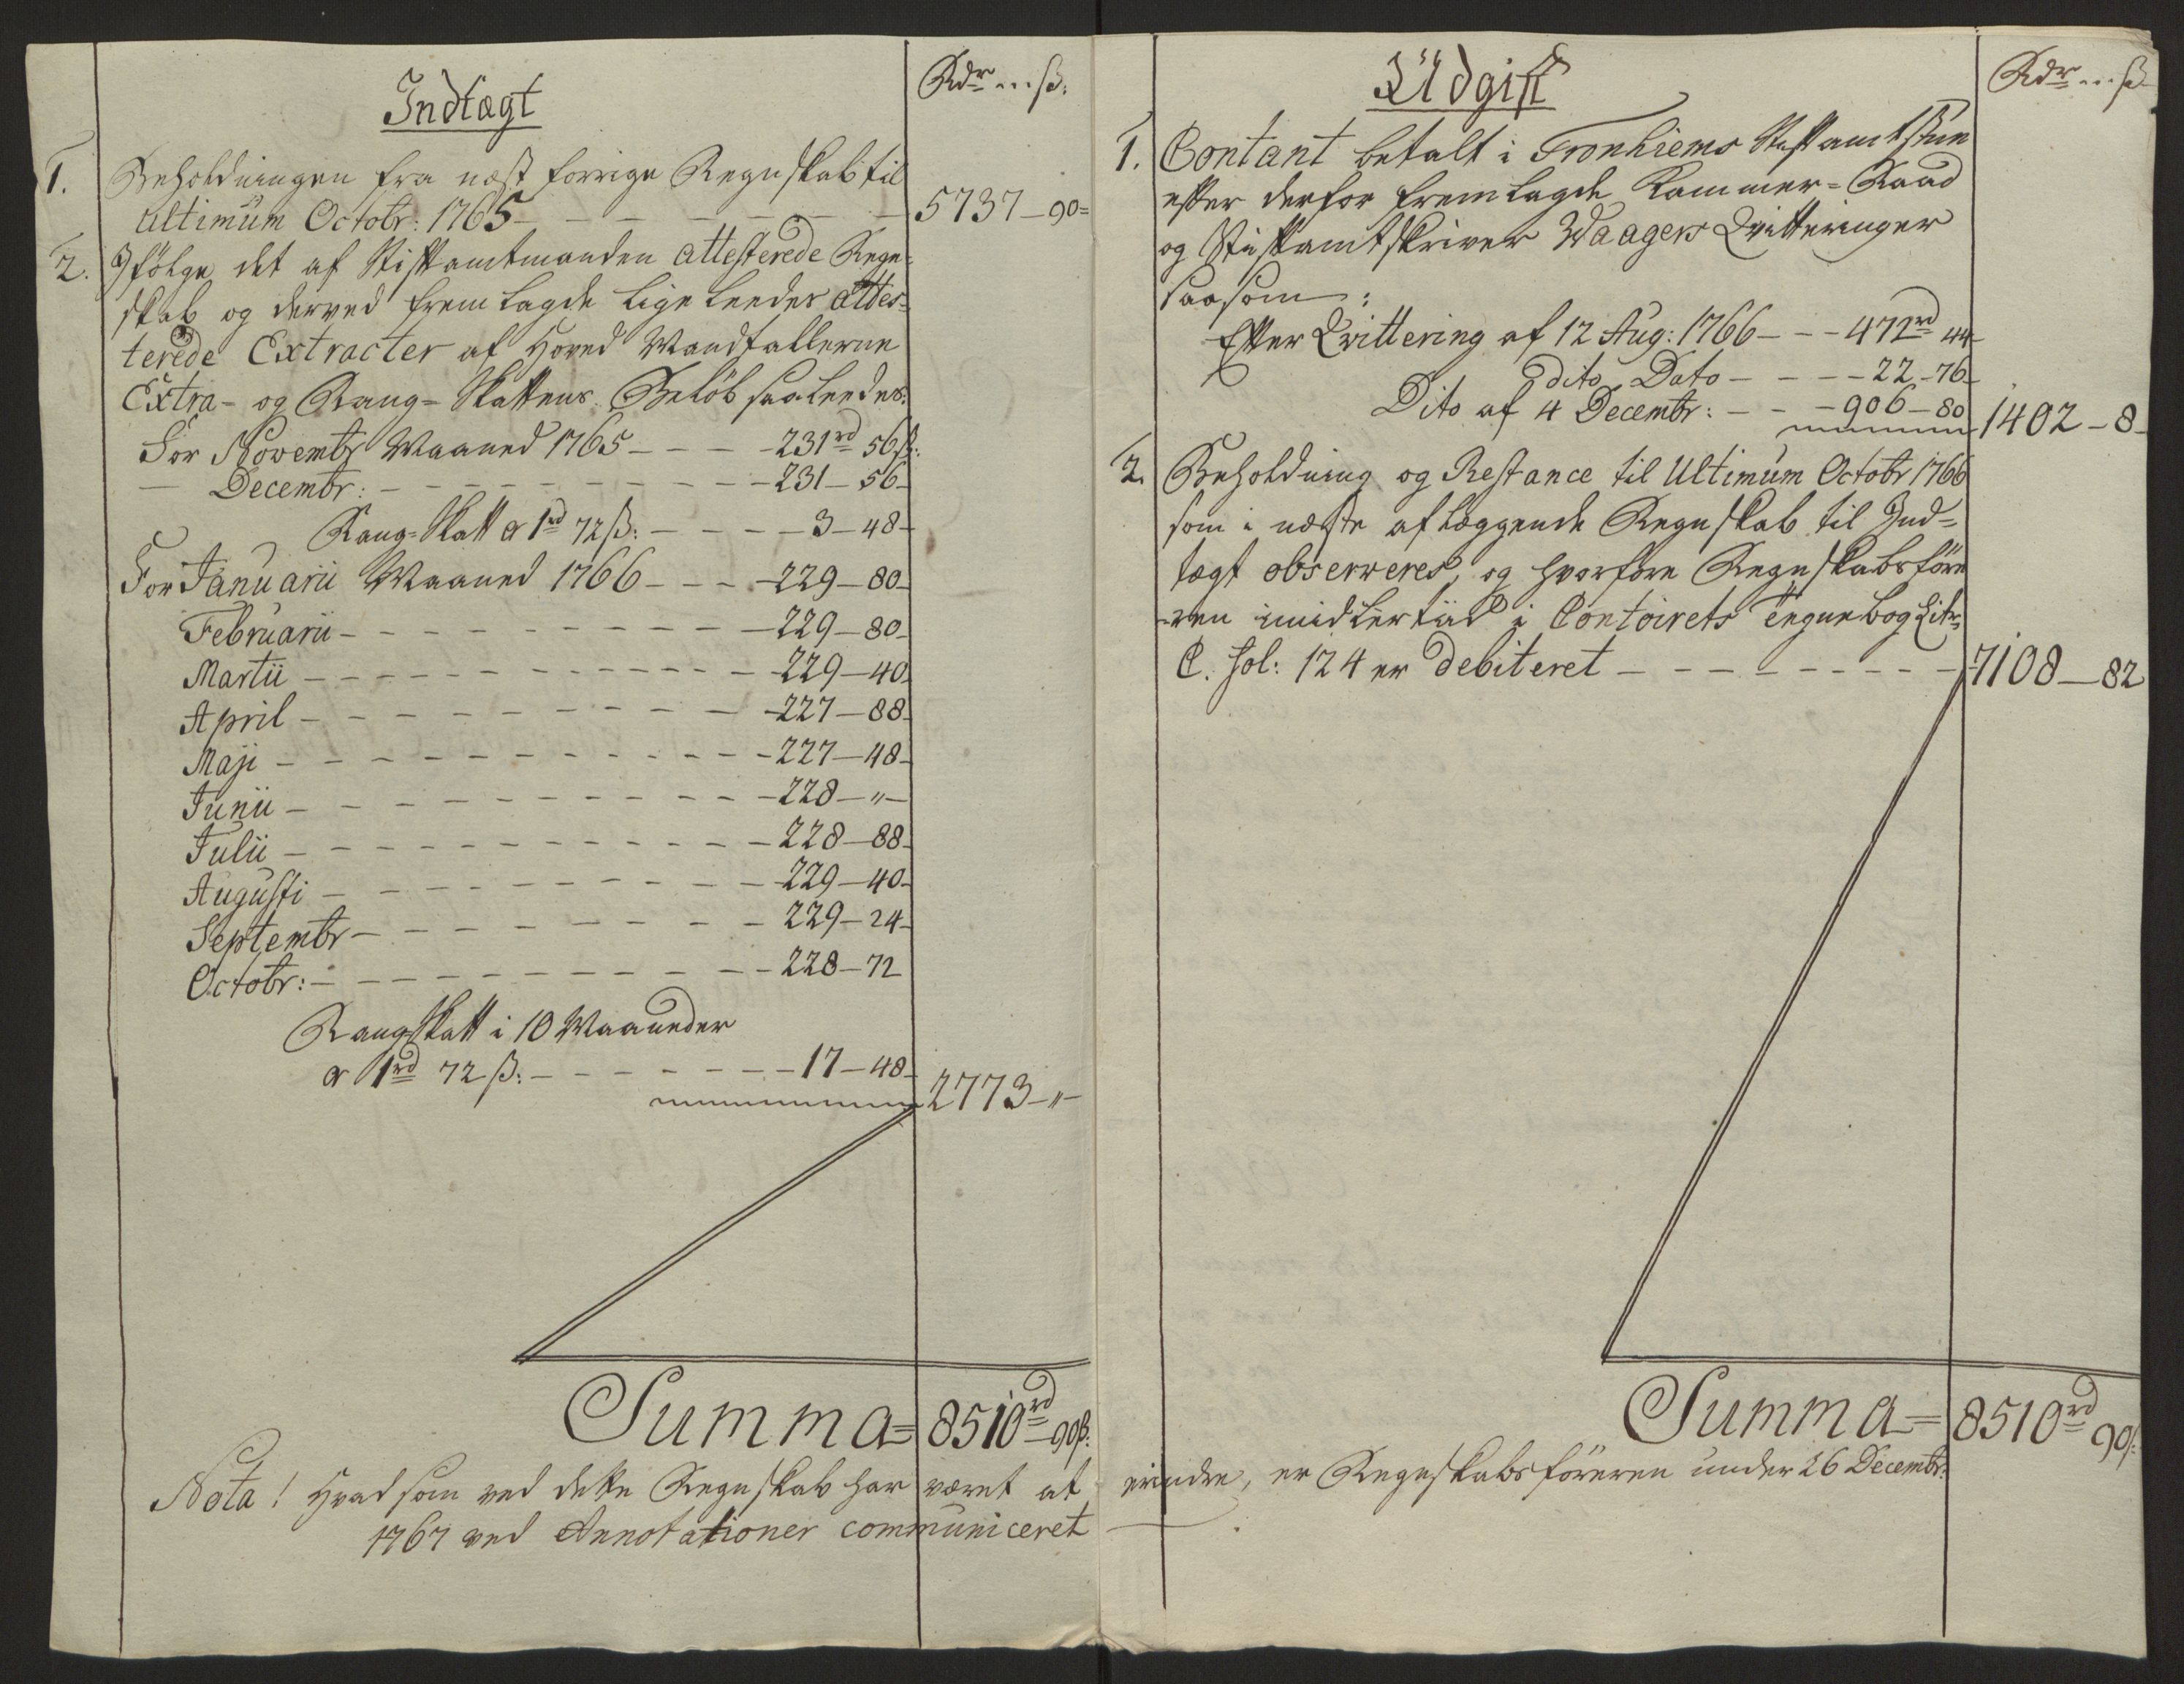 Indtægt
Rdr ... ß:
1. Beholdningen fra næst forrige Regnskab til
Ultimum Octobr: 1765 - - - - - - - 5737 - 90 =
2. Ifölge det af Stiftamtmanden attesterede Regn-
skab og derved fremlagde ligeleedes attes-
terede Extracter af Hoved Mandtallerne
Extra- og Rang-Skattens Belöb saaleedes:
For Novembr Maaned 1765 - - - - 231rd 56ß:
— Decembr: - - - - - - - - - - 231 - 56 -
Rang-Skatt a 1rd 72ß: - - - - - 3 - 48 -
For Januarii Maaned 1766 - - - - 229 - 80 -
Februarii - - - - - - - - - - 229 - 80 -
Martii - - - - - - - - - - - 229 - 40
April - - - - - - - - - - - 227 - 88 -
Maji - - - - - - - - - - - 227 - 48 -
Junii - - - - - - - - - - - 228 - " -
Julii - - - - - - - - - - - 228 - 88 -
Augusti - - - - - - - - - - 229 - 40 -
Septembr - - - - - - - - - 229 - 24 -
Octobr: - - - - - - - - - - 228 - 72
Rangskatt i 10 Maaneder
a 1rd 72ß: - - - - - - - - 17 - 48 -
2773 - " -
Summa = 8510rd 90ß:
Udgift
Rdr ... ß
1. Contant betalt i Tronhiems Stiftamtstue
efter derfor fremlagde Kammer-Raad
og Stiftamtskriver Waagers Qvitteringer
saasom:
Efter Qvittering af 12 Aug: 1766 - - - 472rd 44 -
dito Dato - - - - 22 - 76 -
Dito af 4 Decembr: - - - 906 - 80
1402 - 8 -
2. Beholdning og Restance til Ultimum Octobr 1766
som i næste aflæggende Regnskab til Ind-
tægt observeres, og hvorfore Regnskabsföre
ren imidlertiid i Contoirets Tegnebog Litr:
C. fol: 124 er debiteret - - - - - - - - - 7108 - 82
Summa = 8510rd 90ß:
Nota! Hvad som ved dette Regnskab har været at erindre, er Regnskabsföreren under 26 Decembr:
1767 ved Annotationer communiceret .